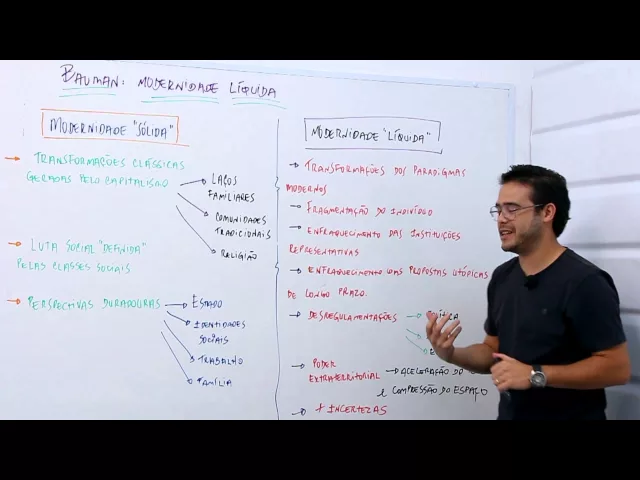 BAUMAN: MODERNIDADE LÍQUIDA
MODERNIDADE "SÓLIDA"
→ TRANSFORMAÇÕES CLÁSSICAS
GERADAS PELO CAPITALISMO
→ LAÇOS
FAMILIARES
→ COMUNIDADES
TRADICIONAIS
→ RELIGIÃO
→ LUTA SOCIAL "DEFINIDA"
PELAS CLASSES SOCIAIS
→ PERSPECTIVAS DURADOURAS
→ ESTADO
→ IDENTIDADES
SOCIAIS
→ TRABALHO
→ FAMÍLIA
MODERNIDADE "LÍQUIDA"
→ TRANSFORMAÇÕES DOS PARADIGMAS
MODERNOS
→ FRAGMENTAÇÃO DO INDIVÍDUO
→ ENFRAQUECIMENTO DAS INSTITUIÇÕES
REPRESENTATIVAS
→ ENFRAQUECIMENTO DAS PROPOSTAS UTÓPICAS
DE LONGO PRAZO.
→ DESREGULAMENTAÇÕES
→ PODER
EXTRATERRITORIAL
→ ACELERAÇÃO DO
E COMPRESSÃO DO ESPAÇO
→ + INCERTEZAS